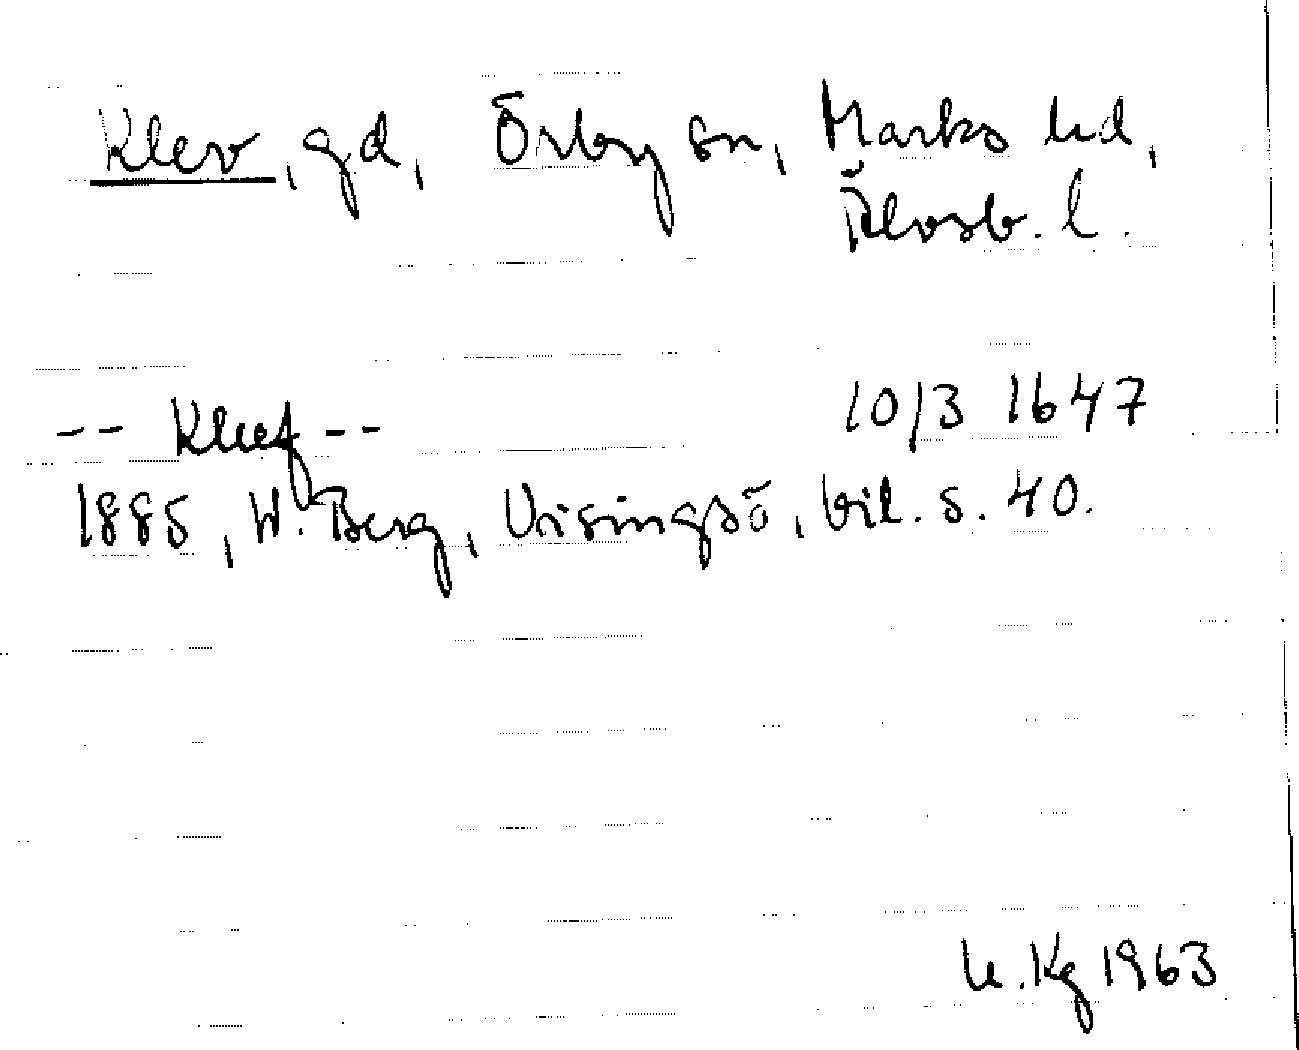 Klev, gd, Örby sn, Marks hd,
Älvsb. l.
-- Kleef -- 10/3 1647
1885, W. Berg, Visingsö, bil. s. 40.
H. Kg 1963